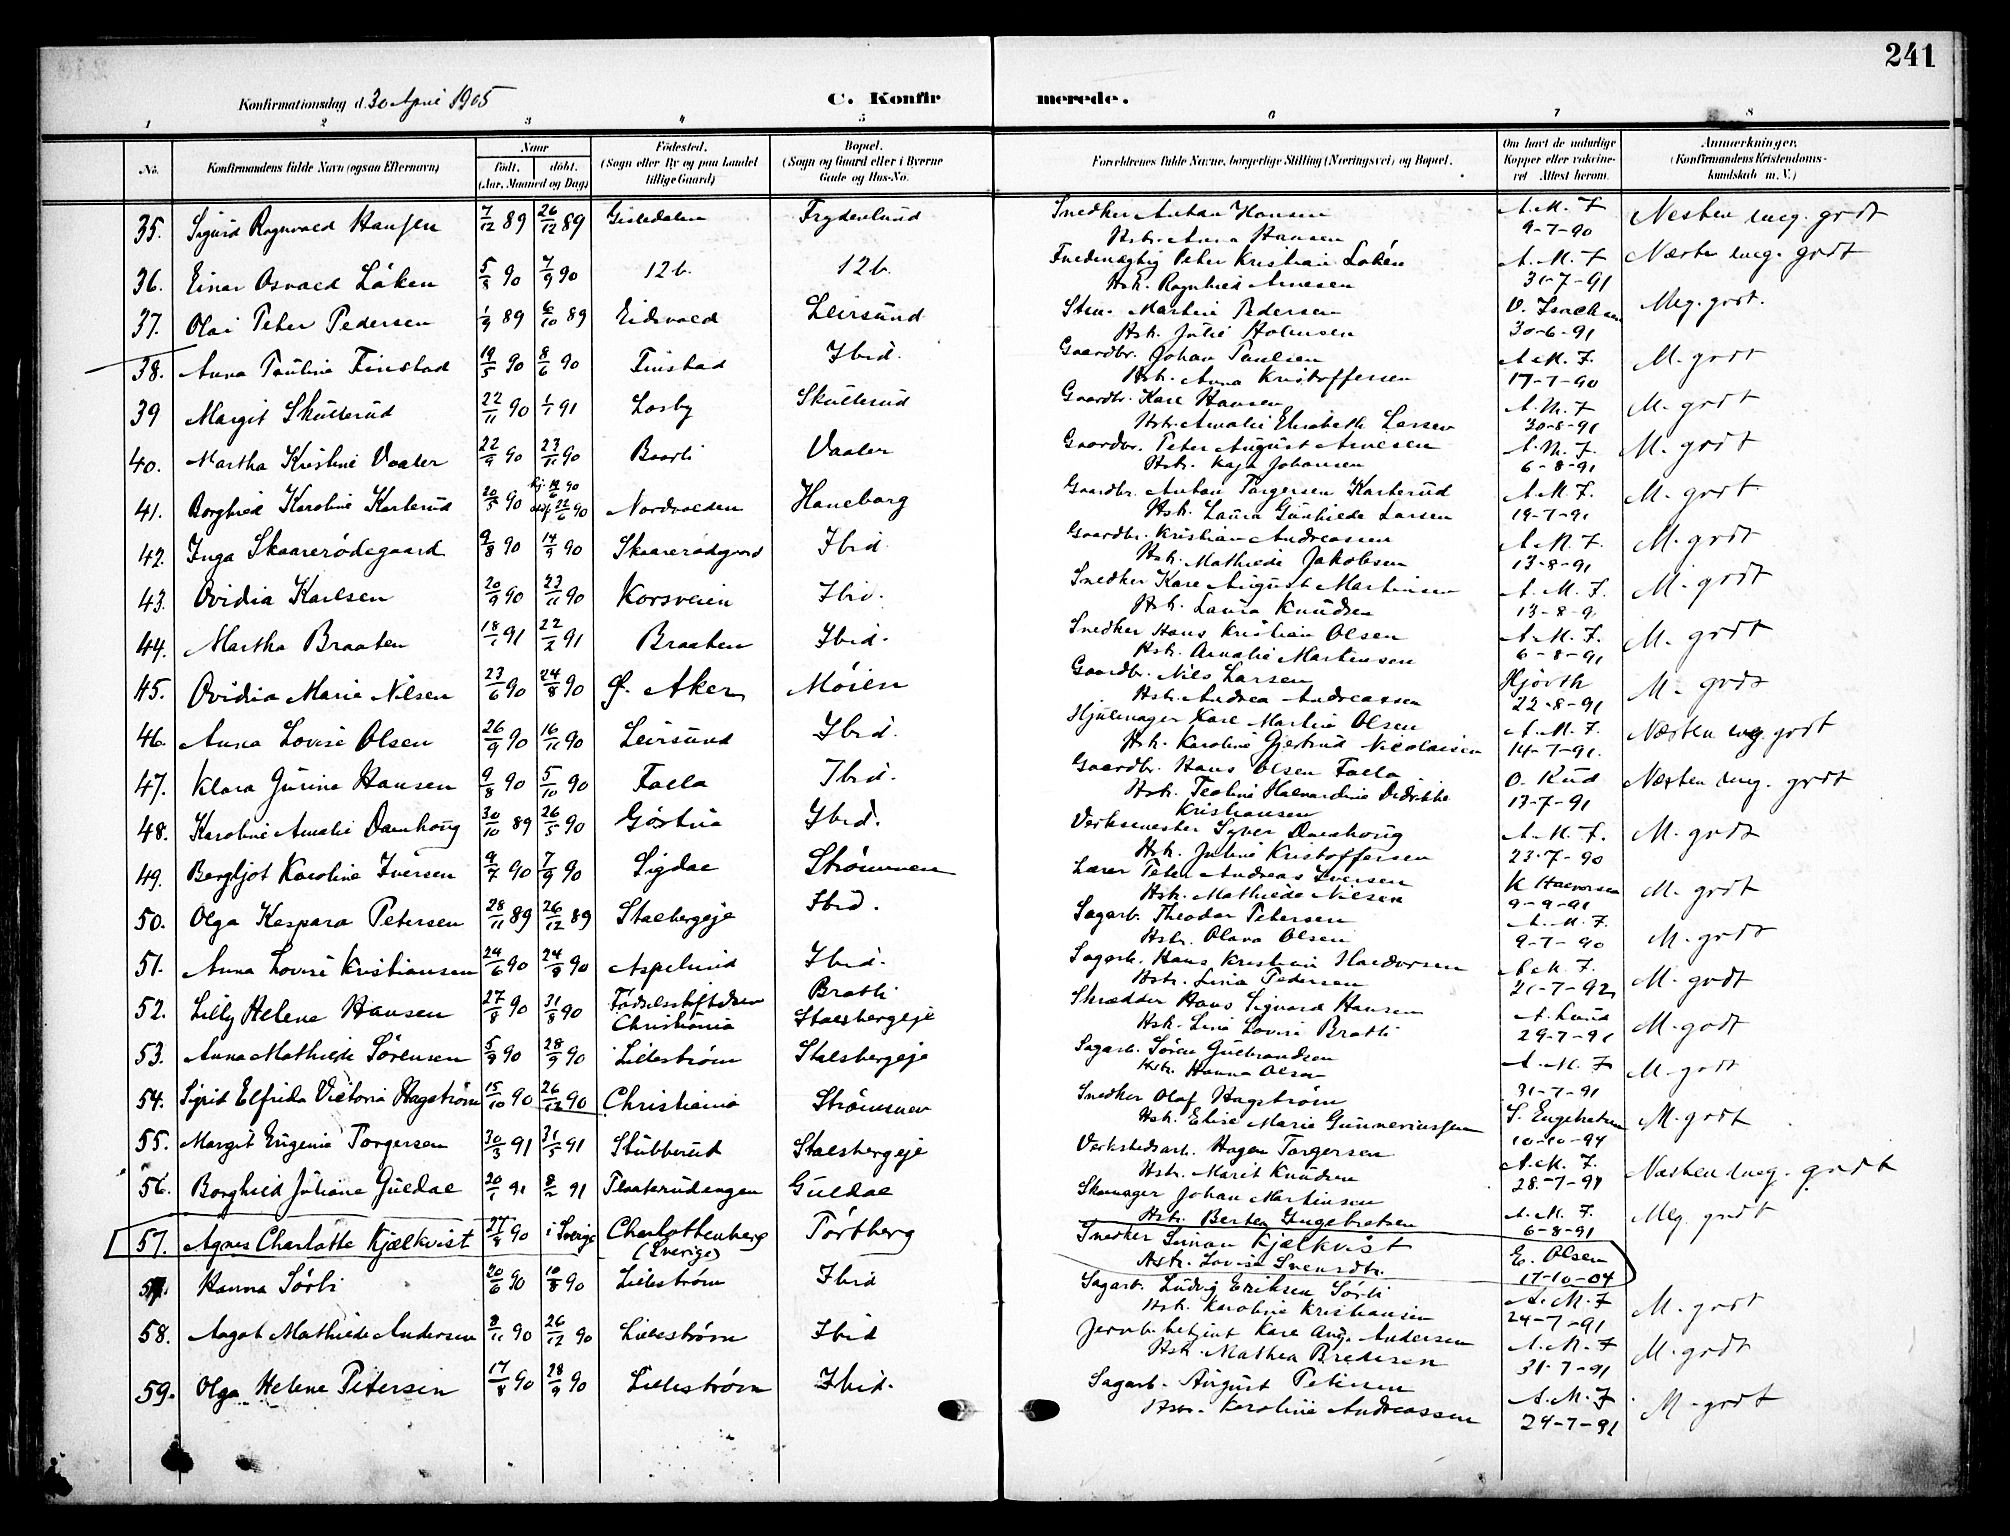 241
Konfirmationsdag d. 30 April 1905
C. Konfirmerede.
1 2 3 4 5 6 7 8
No. Konfirmandens fulde Navn (ogsaa Efternavn) Naar født. døbt. (Aar, Maaned og Dag) Fødested. (Sogn eller By og paa Landet tillige Gaard) Bopæl. (Sogn og Gaard eller i Byerne Gade og Hus-No. Forældrenes fulde Navne, borgerlige Stilling (Næringsvei) og Bopæl. Om havt de naturlige Kopper eller vaccineret. Attest herom. Anmærkninger. (Konfirmandens Kristendomskundskab m. V.)
35. Sigurd Ragnvald Hansen 7/12 89 26/12 89 Frydenlund Snedker Anton Hansen A. M. F. Næsten meg. godt
Hstr. Anna Hansen 9-7-90
36. Einar Osvald Løken 5/8 90 7/9 90 12b. 12b. Peter Kristian Løken A. M. F Næsten meg. godt
Hstr. Ragnhild Arnesen 31-7-91
37. Olai Peter Pedersen 1/9 89 6/10 89 Eidsvold Leirsund Martin Pedersen Meg. godt.
Hstr. Julie Holmsen 30-6-91
38. Anna Pauline Finstad 19/5 90 8/6 90 Finstad Ibid. Gaardbr. Johan Paulsen A. M. F. M. godt
Hstr. Anna Kristoffersen 17-7-90
39 Margit Skullerud 22/11 90 1/1 91 Losby Skullerud Gaardbr. Karl Hansen A. M. F M. godt
Hstr. Amalie Elisabeth Larsen 30-8-91
40. Martha Kristine Vaaler 22/9 90 23/11 90 Vaaler Gaardbr. Peter August Arnesen A. M. F. M. godt
Hstr. Kaja Johansen 6-8-91
41. Borghild Karoline Karterud 20/5 90 22/6 90 Nordvolden Haneborg Gaardbr. Anton Torgersen Karterud A. M. F. M. godt
Hstr. Laura Gunhilde Larsen 19-7-91
42. Inga Skaarerødegaard 9/8 90 14/9 90 Skaarerødgaard Ibid. Gaardbr. Kristian Andreassen A. M. F. M. godt
Hstr. Mathilde Jakobsen 13-8-91
43. Ovidia Karlsen 20/9 90 23/11 90 Korsveien Ibid. Snedker Karl August Martinsen A. M. F. M. godt
Hstr. Laura Knudsen 13-8-9
44. Martha Braaten 18/1 91 22/2 91 Braaten Ibid. Snedker Hans Kristian Olsen A. M. F. M. godt
Hstr. Amalie Martinsen 6-8-91
45. Ovidia Marie Nilsen 23/6 90 24/8 90 Ø. Aker Møien Gaardbr. Nils Larsen Hjorth M. godt
Hstr. Andrea Andreassen 22-8-91
46. Anna Lovise Olsen 26/9 90 16/11 90 Leirsund Ibid. Hjulmager Karl Martin Olsen A. M. F. Næsten meg godt
Hstr. Karoline Gjertrud Nicolaisen 14-7-91.
47. Klara Gurine Hansen 9/8 90 5/10 90 Falla Ibid. Gaardbr. Hans Olsen Falla O. Rud Næsten meg. godt
Hstr. Teoline Halvardine Didrikke 13-7-91
Kristiansen
48. Karoline Amalie Damhoug 30/10 89 26/5 90 Ibid. Verksmester Syver Damhoug A. M. F. M. godt
Hstr. Juline Kristoffersen 23-7-90
49. Bergljot Karoline Iversen 9/7 90 7/9 90 Sigdal Strømmen Lærer Peter Andreas Iversen K Halvorsen M. godt
Hstr. Mathilde Nilsen 9-9-91
50. Olga Kaspara Petersen 28/11 89 26/12 89 Stalsbergeje Ibid. Sagarb. Theodor Petersen A. M. F. M. godt
Hstr. Olava Olsen 9-7-90
51. Anna Lovise Kristiansen 24/6 90 24/8 90 Aspelund Ibid. Sagarb. Hans Kristian Halvorsen A. M. F. M. godt
Hstr. Lina Pedersen 21-7-92
52. Lilly Helene Hansen 27/8 90 31/8 90 Fødselsstiftelsen Bratli Skrædder Hans Sigvard Hansen A. Lund M. godt
Christiania Stalsbergeje Hstr. Lina Lovise Bratli 29-7-91
53. Anna Mathilde Sørensen 5/9 90 28/9 90 Lillestrøm Stalsbergeje Sagarb. Søren Gulbrandsen A. M. F M. godt
Hstr. Hanna Olsen 31-7-91
54. Sigrid Elfrida Victoria Hagstrøm 15/10 90 26/12 90 Christiania Strømmen Snedker Olaf Hagstrøm S. Engebretsen M. godt
Hstr. Elise Marie Gunneriussen 10-10-94
55. Margit Eugenie Torgersen 30/3 91 31/5 91 Stubberud Stalsbergeje Verkstedsarb. Hagen Torgersen A. M. F. Næsten meg. godt
Hstr. Marit Knudsen 28-7-91
56. Borghild Juliane Guldal 20/1 91 8/2 91 Flaaterudengen Guldal Skomager Johan Martinsen A. M. F. Meg. godt
Hstr. Berthe Ingebretsen 6-8-91
57. Agnes Charlotte Kjælkvist 27/8 90 i Sverige Charlottenberg Tortberg Snedker Simon Kjælkvist E. Olsen
(Sverige) Hstr. Lovise Svensdtr. 17-10-04
57. Hanna Sørli 20/6 90 10/8 90 Lillestrøm Ibid Sagarb. Ludvig Eriksen Sørli A. M. F M. godt
Hstr. Karoline Kristiansen 24-7-91
58. Aagot Mathilde Andersen 8/11 90 26/12 90 Lillestrøm Ibid Jernb. betjent Karl Aug. Andersen A. M. F M. godt
Hstr. Mathea Bredesen 31-7-91
59. Olga Helene Petersen 17/8 90 28/9 90 Lillestrøm Ibid. Sagarb. August Petersen A. M. F M. godt
Hstr. Karoline Andreassen 24-7-91